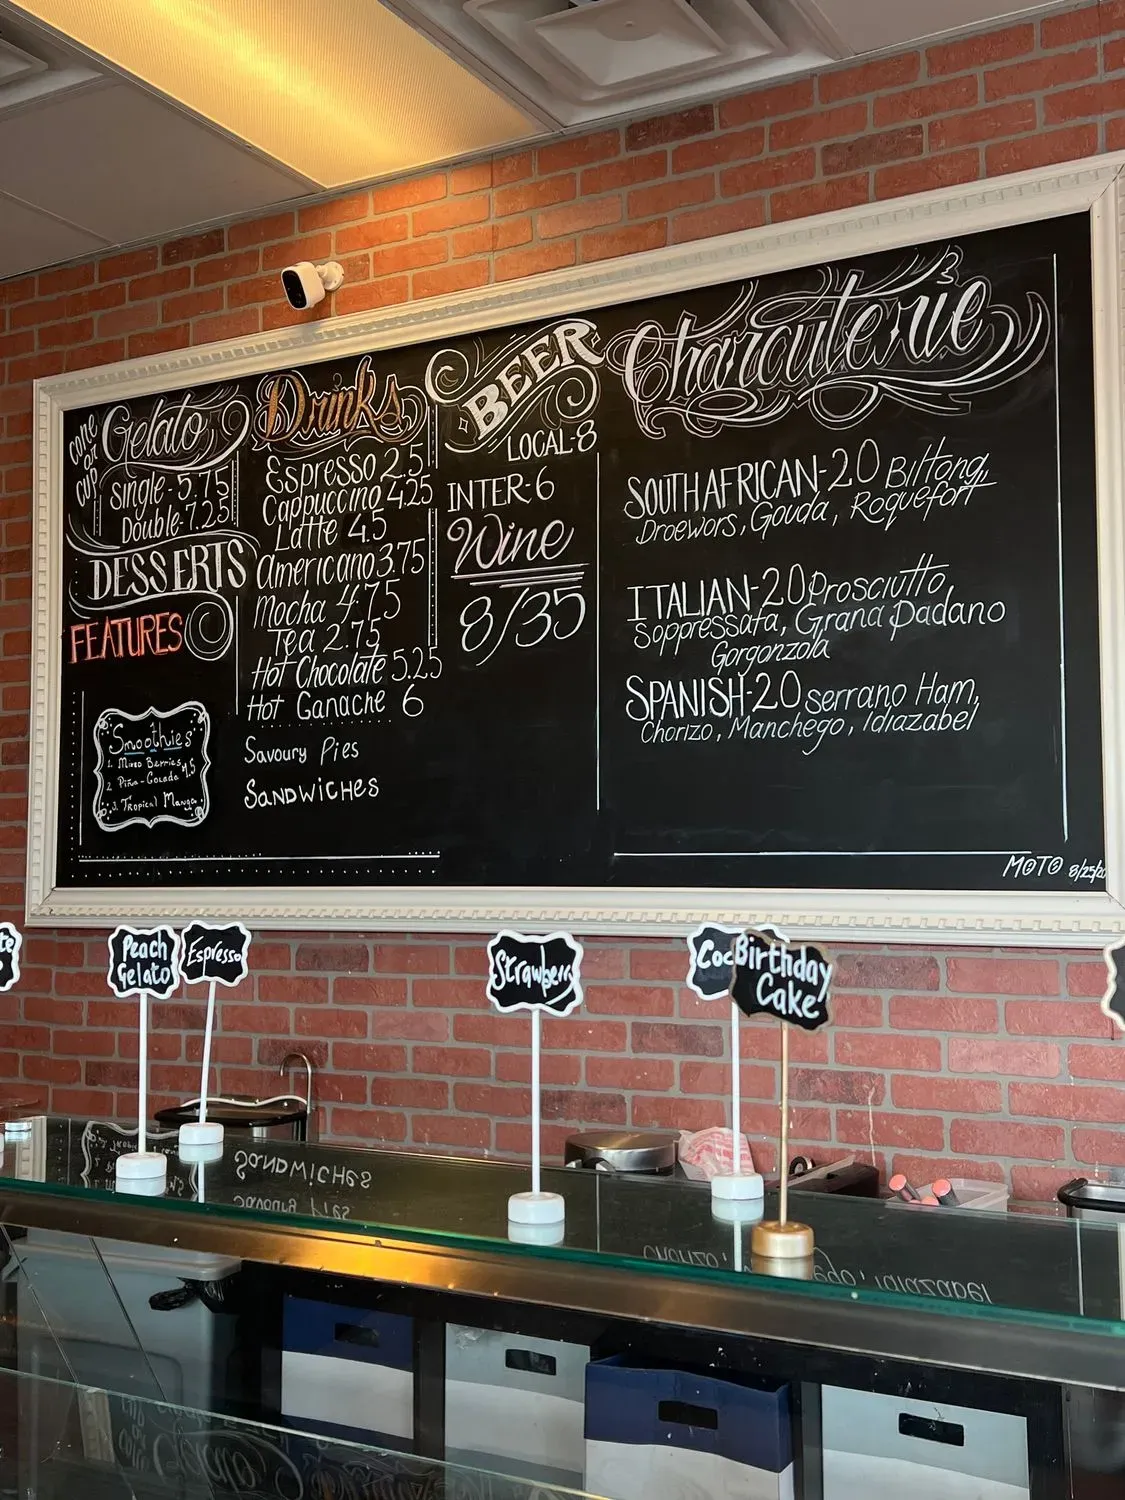 cone
or
cup
Gelato
Single-5.75
Double-7.25
DESSERTS
FEATURES
Smoothies
1. Mixed Berries
2. Piña-Colada 4.5
3. Tropical Mango
Drinks
Espresso 2.5
Cappuccino 4.25
Latte 4.5
Americano 3.75
Mocha 4.75
Tea 2.75
Hot Chocolate 5.25
Hot Ganache 6
Savoury Pies
SANDWiCHES
BEER
LOCAL-8
INTER-6
Wine
8/35
Charcuterie
SOUTH AFRICAN-20 Biltong,
Droewors, Gouda, Roquefort
ITALIAN-20 Prosciutto,
Soppressata, Grana Padano
Gorgonzola
SPANISH-20 serrano Ham,
Chorizo, Manchego, Idiazabel
MOTO 8/25/20
Peach
Gelato
Espresso
Strawberry
Birthday
Cake